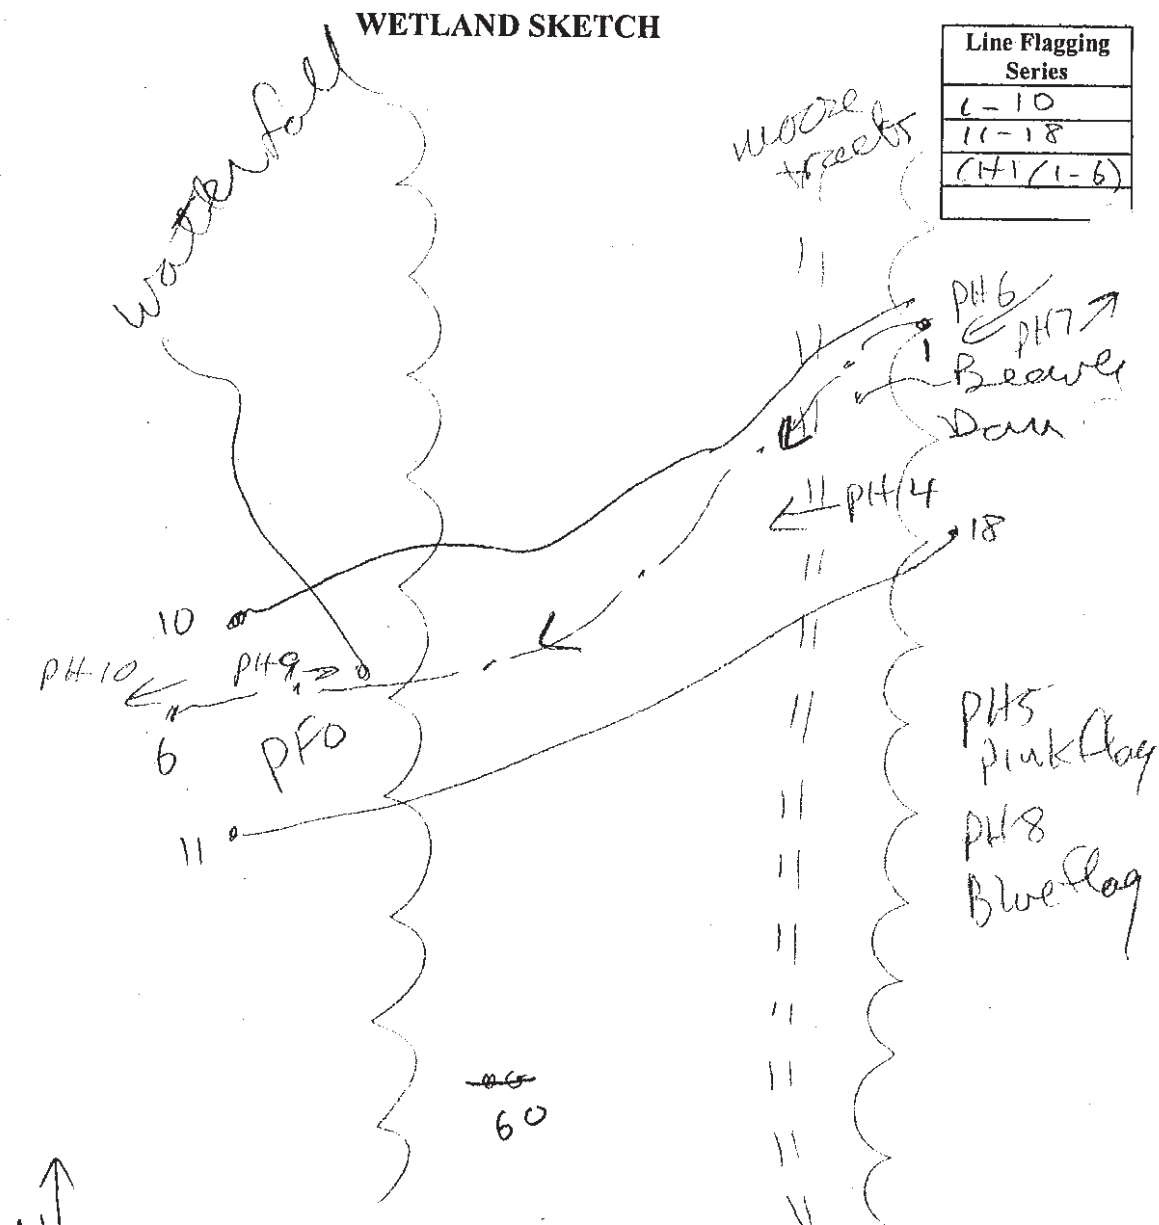 WETLAND SKETCH
Line Flagging
Series
1-10
11-18
CH1 (1-6)
Waterfall
moose
tracks
PH6
PH7
1
Beaver
Dam
PH14
18
10
PH-10
PH9
6
PFO
11
PH5
Pink flag
PH8
Blue flag
60
N